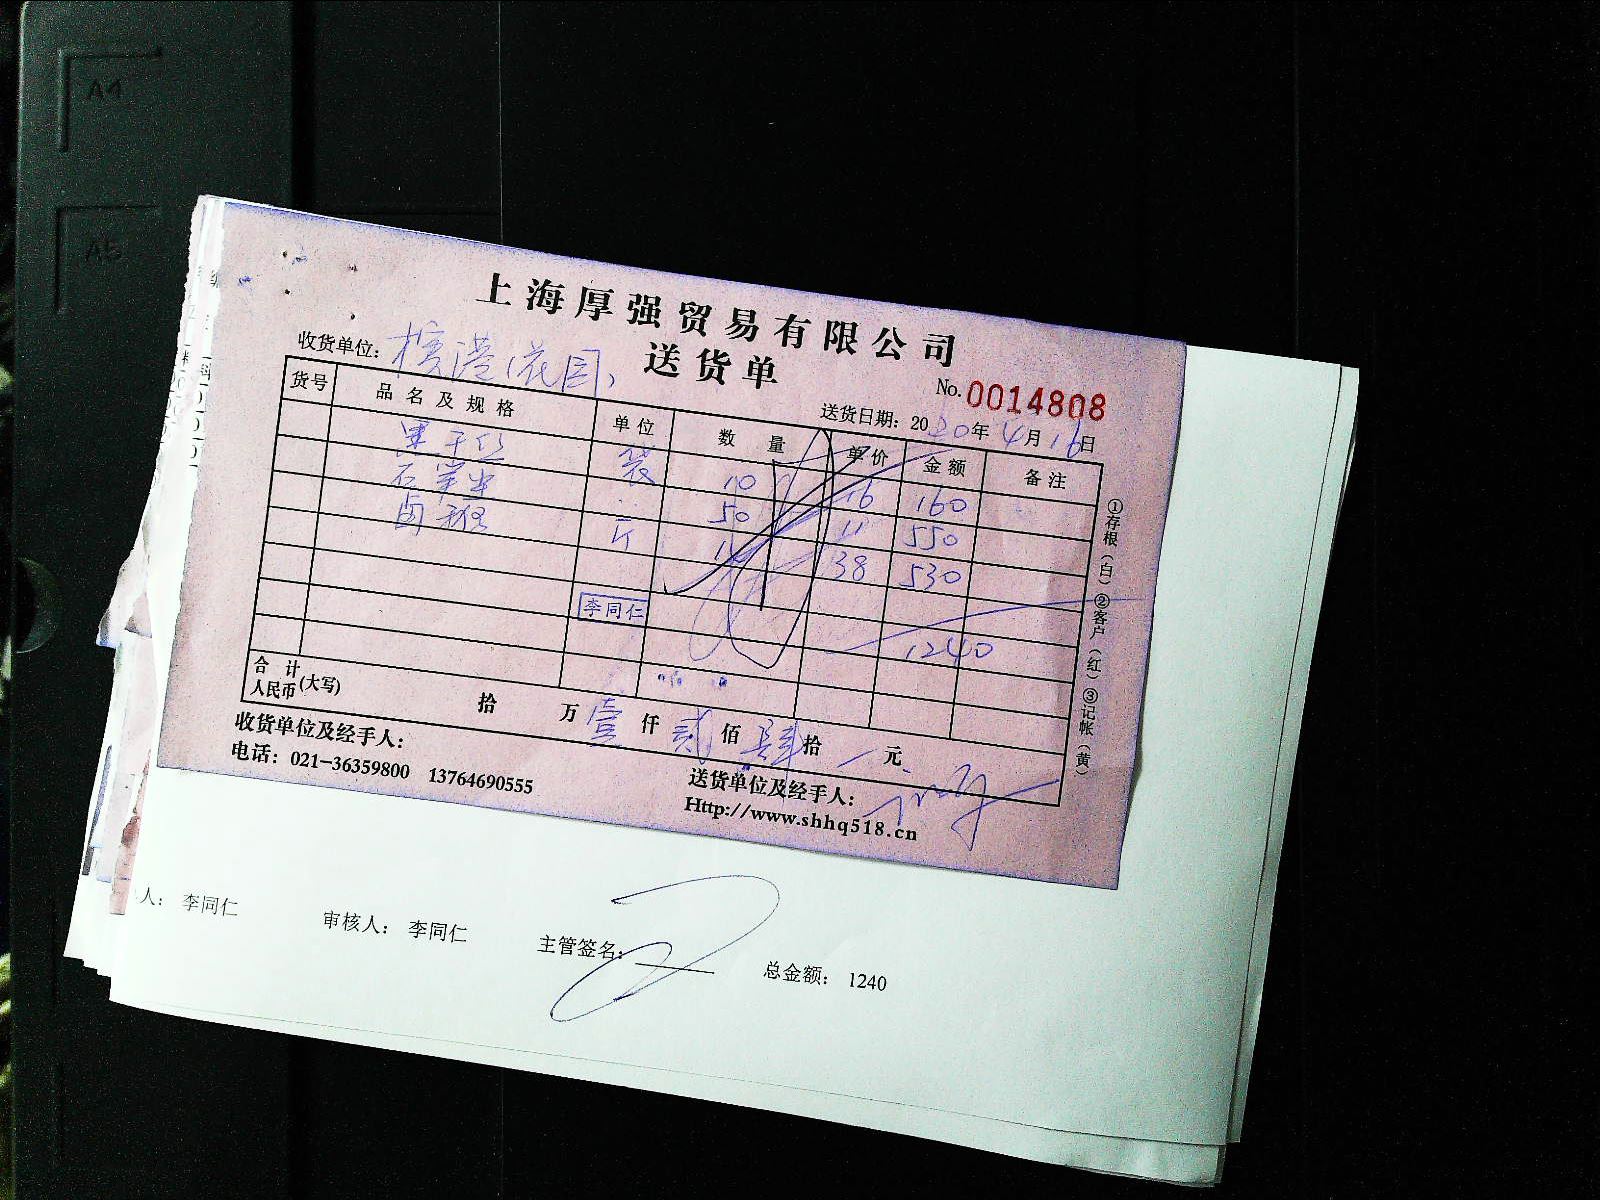 A4
A5
上海厚强贸易有限公司
送货单
收货单位：
No. 0014808
送货日期：2020年4月16日
货号 品名及规格 单位 数量 单价 金额 备注
10 16 160
50 11 550
斤 38 530
李同仁
1240
合计
人民币(大写) 拾 万 壹 仟 贰 佰 肆 拾 元
收货单位及经手人：
电话：021-36359800 13764690555
送货单位及经手人：
Http://www.shhq518.cn
①存根（白）②客户（红）③记帐（黄）
人： 李同仁 审核人： 李同仁 主管签名： 总金额： 1240